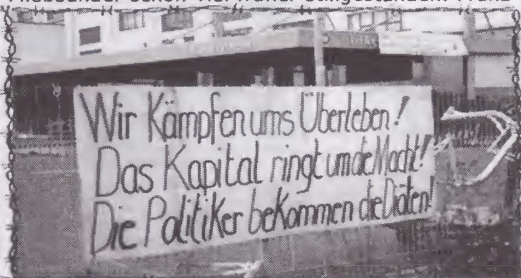 Wir Kämpfen ums Überleben!
Das Kapital ringt um die Macht!
Die Politiker bekommen die Diäten!